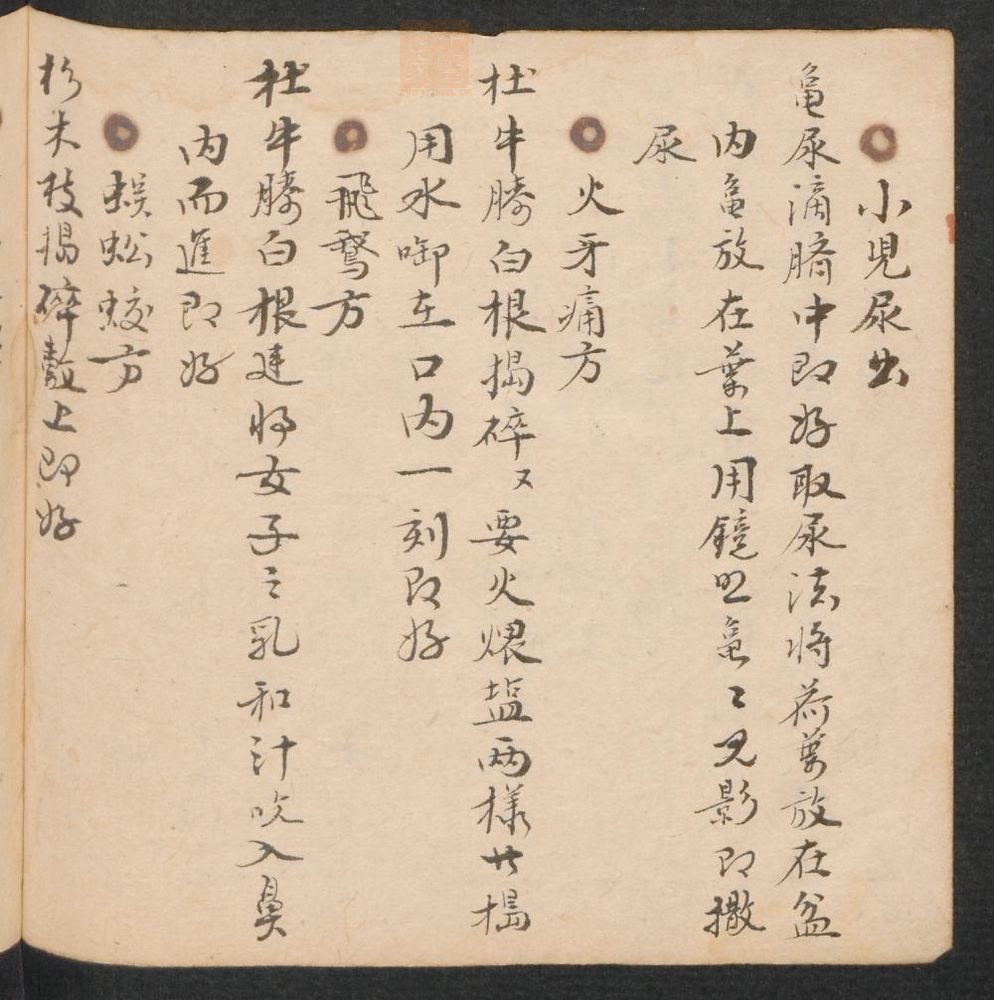 小児尿出
亀尿滴臍中即好取尿法将荷葉放在盆
内亀放在葉上用鏡照亀〻見影即撒
尿
火牙痛方
杜牛膝白根搗碎又要火煨塩两様共搗
用水啣在口内一刻即好
飛鵞方
杜牛膝白根連将女子之乳和汁吹入鼻
内而進即好
蜈蚣蛟方
杉木枝搗碎敷上即好